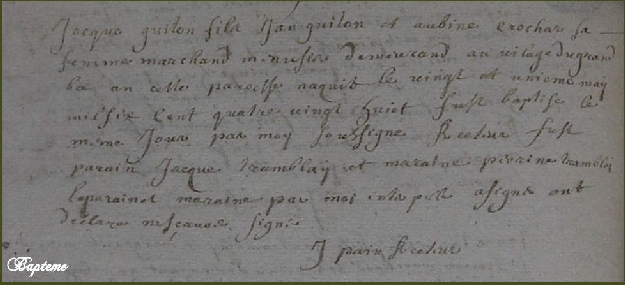 Jacque guilon fils Jan guilon et aubine crochar sa
femme marchand menusie demeurand au vilage du grand
be an cette paroesse naquit le vingt et unieme may
mil six cent quatre vingt huict fust baptise le
meme Jour par moy soussigne Recteur fust
parain Jacque tramblay et maraine perine tramblai
le parain et maraine par moi interpelle a signe ont
declare ne sçavoir signé
J pain Recteur
Bapteme